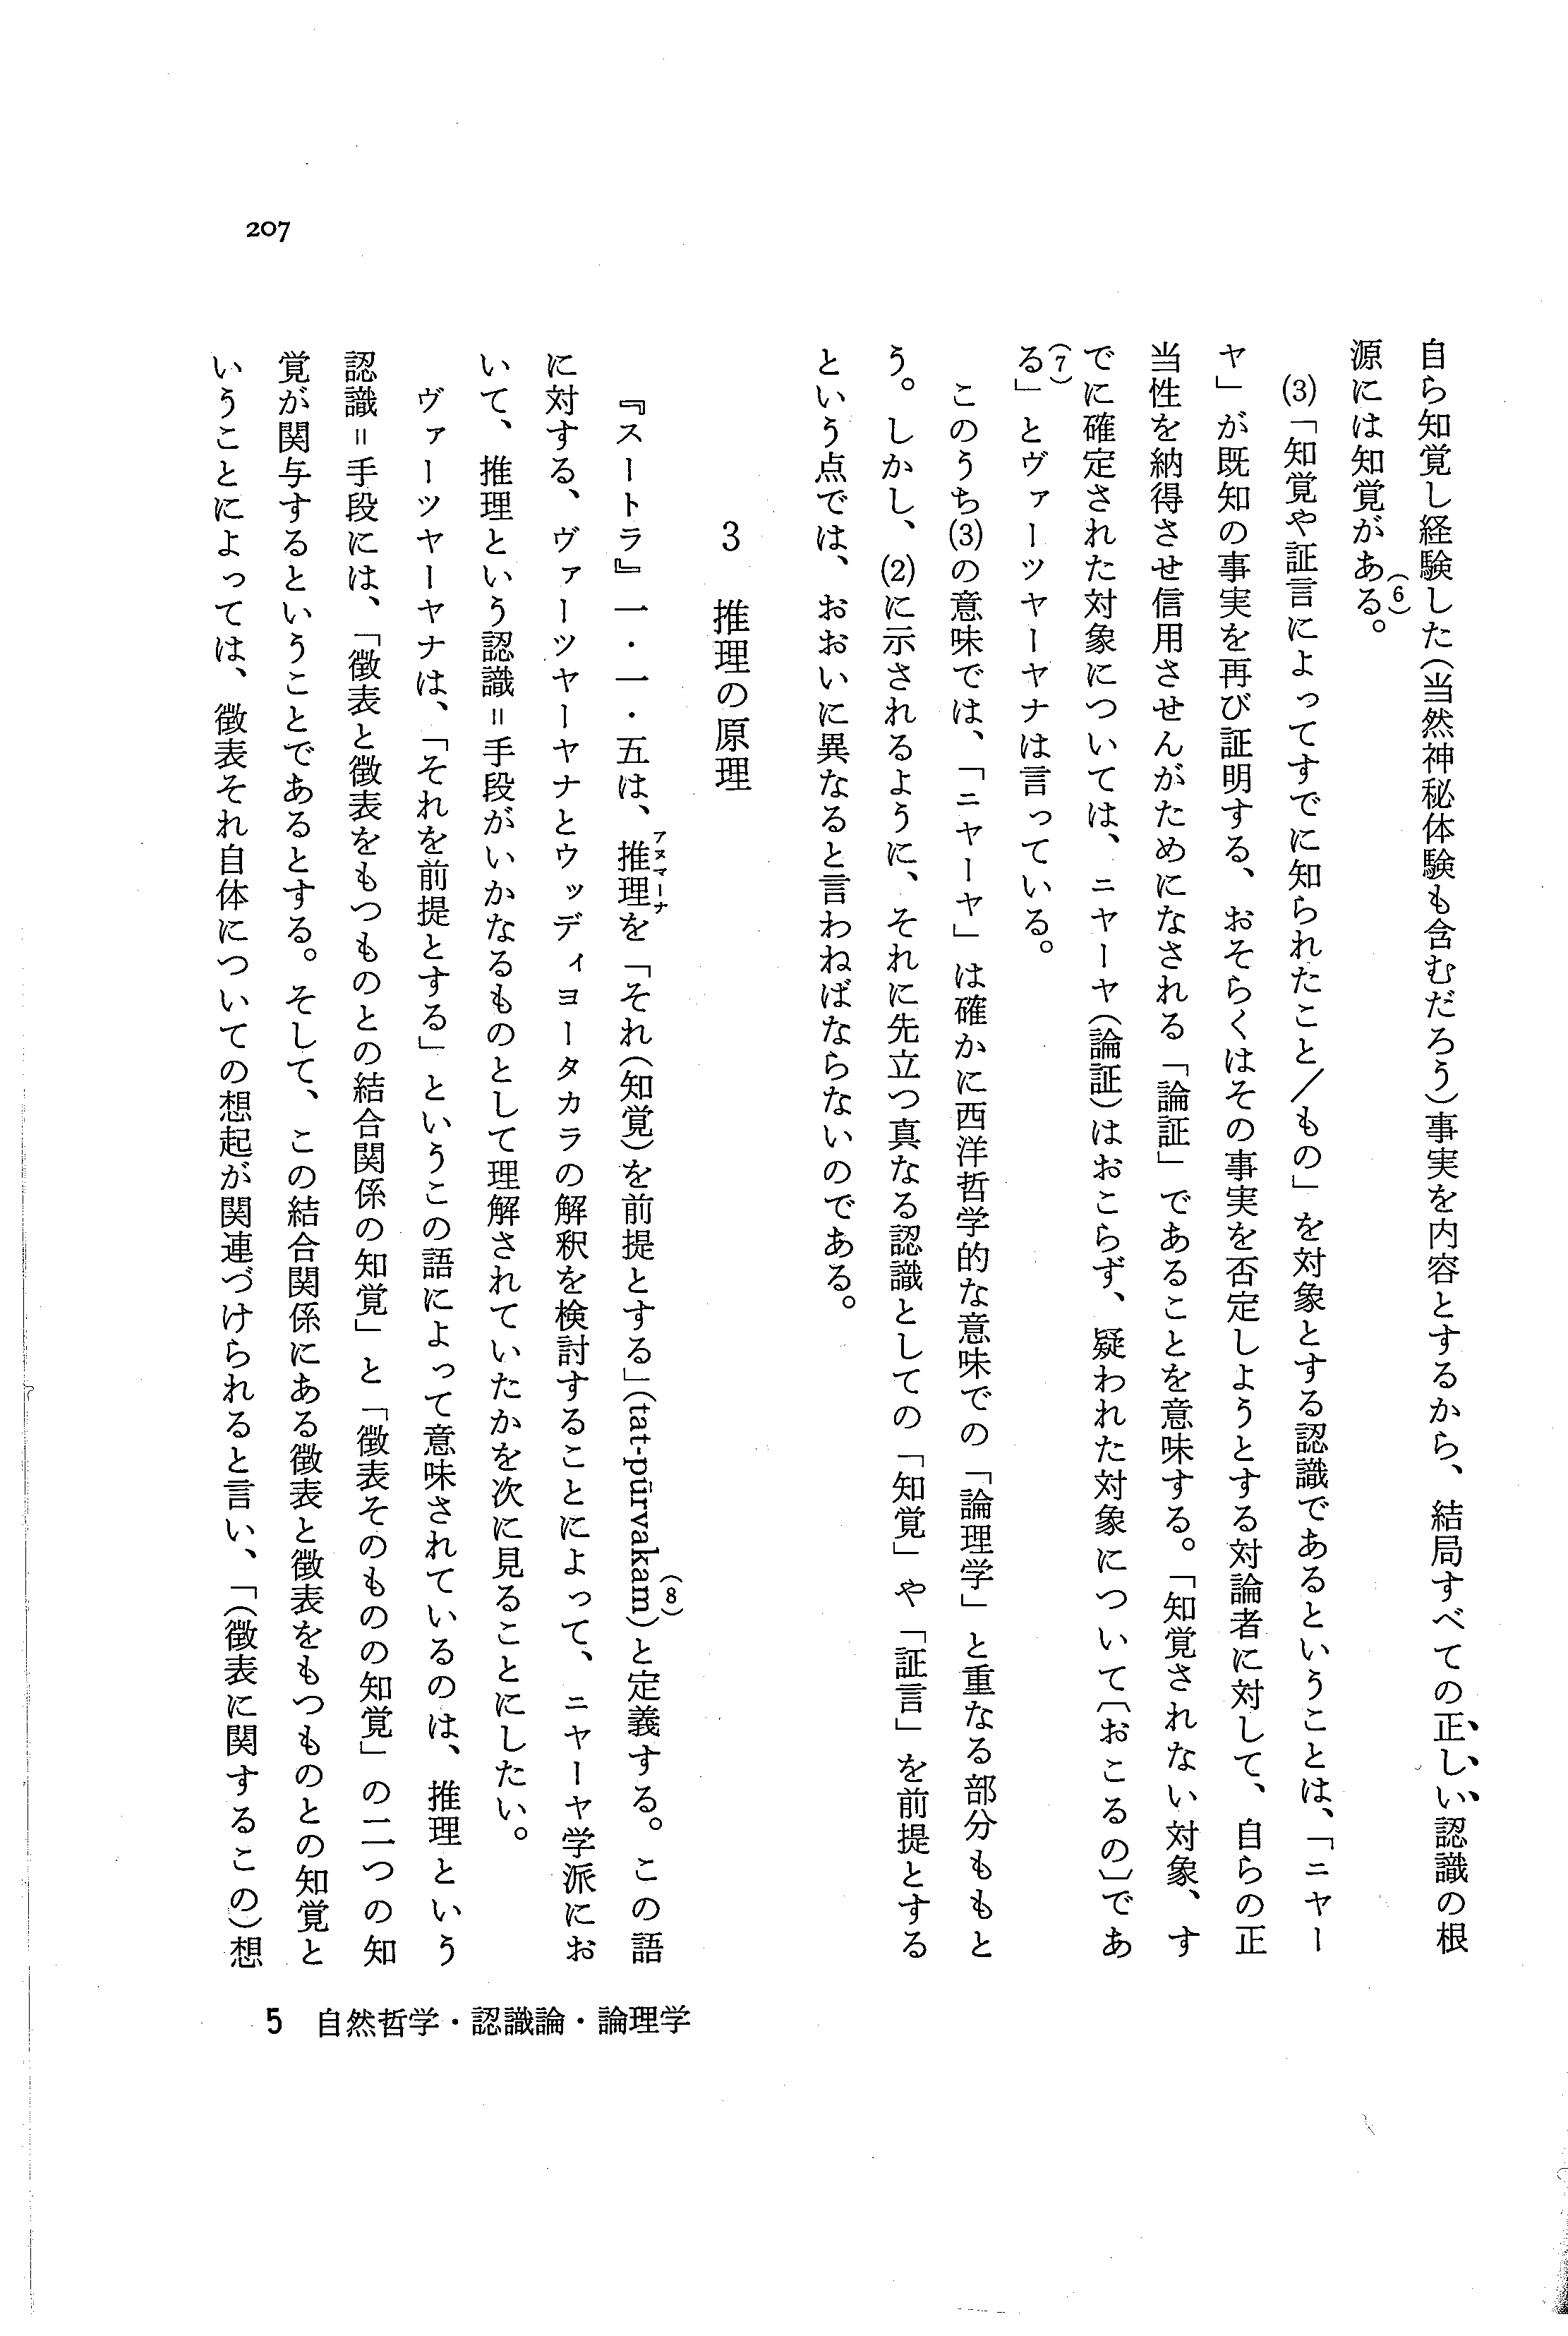 自ら知覚し経験した（当然神秘体験も含むだろう）事実を内容とするから、結局すべての正しい認識の根
源には知覚がある。(6)
(3)「知覚や証言によってすでに知られたこと／もの」を対象とする認識であるということは、「ニヤー
ヤ」が既知の事実を再び証明する、おそらくはその事実を否定しようとする対論者に対して、自らの正
当性を納得させ信用させんがためになされる「論証」であることを意味する。「知覚されない対象、す
でに確定された対象については、ニヤーヤ（論証）はおこらず、疑われた対象について〔おこるの〕であ
る」(7)とヴァーツヤーヤナは言っている。
このうち(3)の意味では、「ニヤーヤ」は確かに西洋哲学的な意味での「論理学」と重なる部分ももと
う。しかし、(2)に示されるように、それに先立つ真なる認識としての「知覚」や「証言」を前提とする
という点では、おおいに異なると言わねばならないのである。
3　推理の原理
『スートラ』一・一・五は、推理を「それ（知覚）を前提とする」（tat-pūrvakam）(8)と定義する。この語
アヌマーナ
に対する、ヴァーツヤーヤナとウッディヨータカラの解釈を検討することによって、ニヤーヤ学派にお
いて、推理という認識＝手段がいかなるものとして理解されていたかを次に見ることにしたい。
ヴァーツヤーヤナは、「それを前提とする」というこの語によって意味されているのは、推理という
認識＝手段には、「徴表と徴表をもつものとの結合関係の知覚」と「徴表そのものの知覚」の二つの知
覚が関与するということであるとする。そして、この結合関係にある徴表と徴表をもつものとの知覚と
いうことによっては、徴表それ自体についての想起が関連づけられると言い、「（徴表に関するこの）想
207
5　自然哲学・認識論・論理学